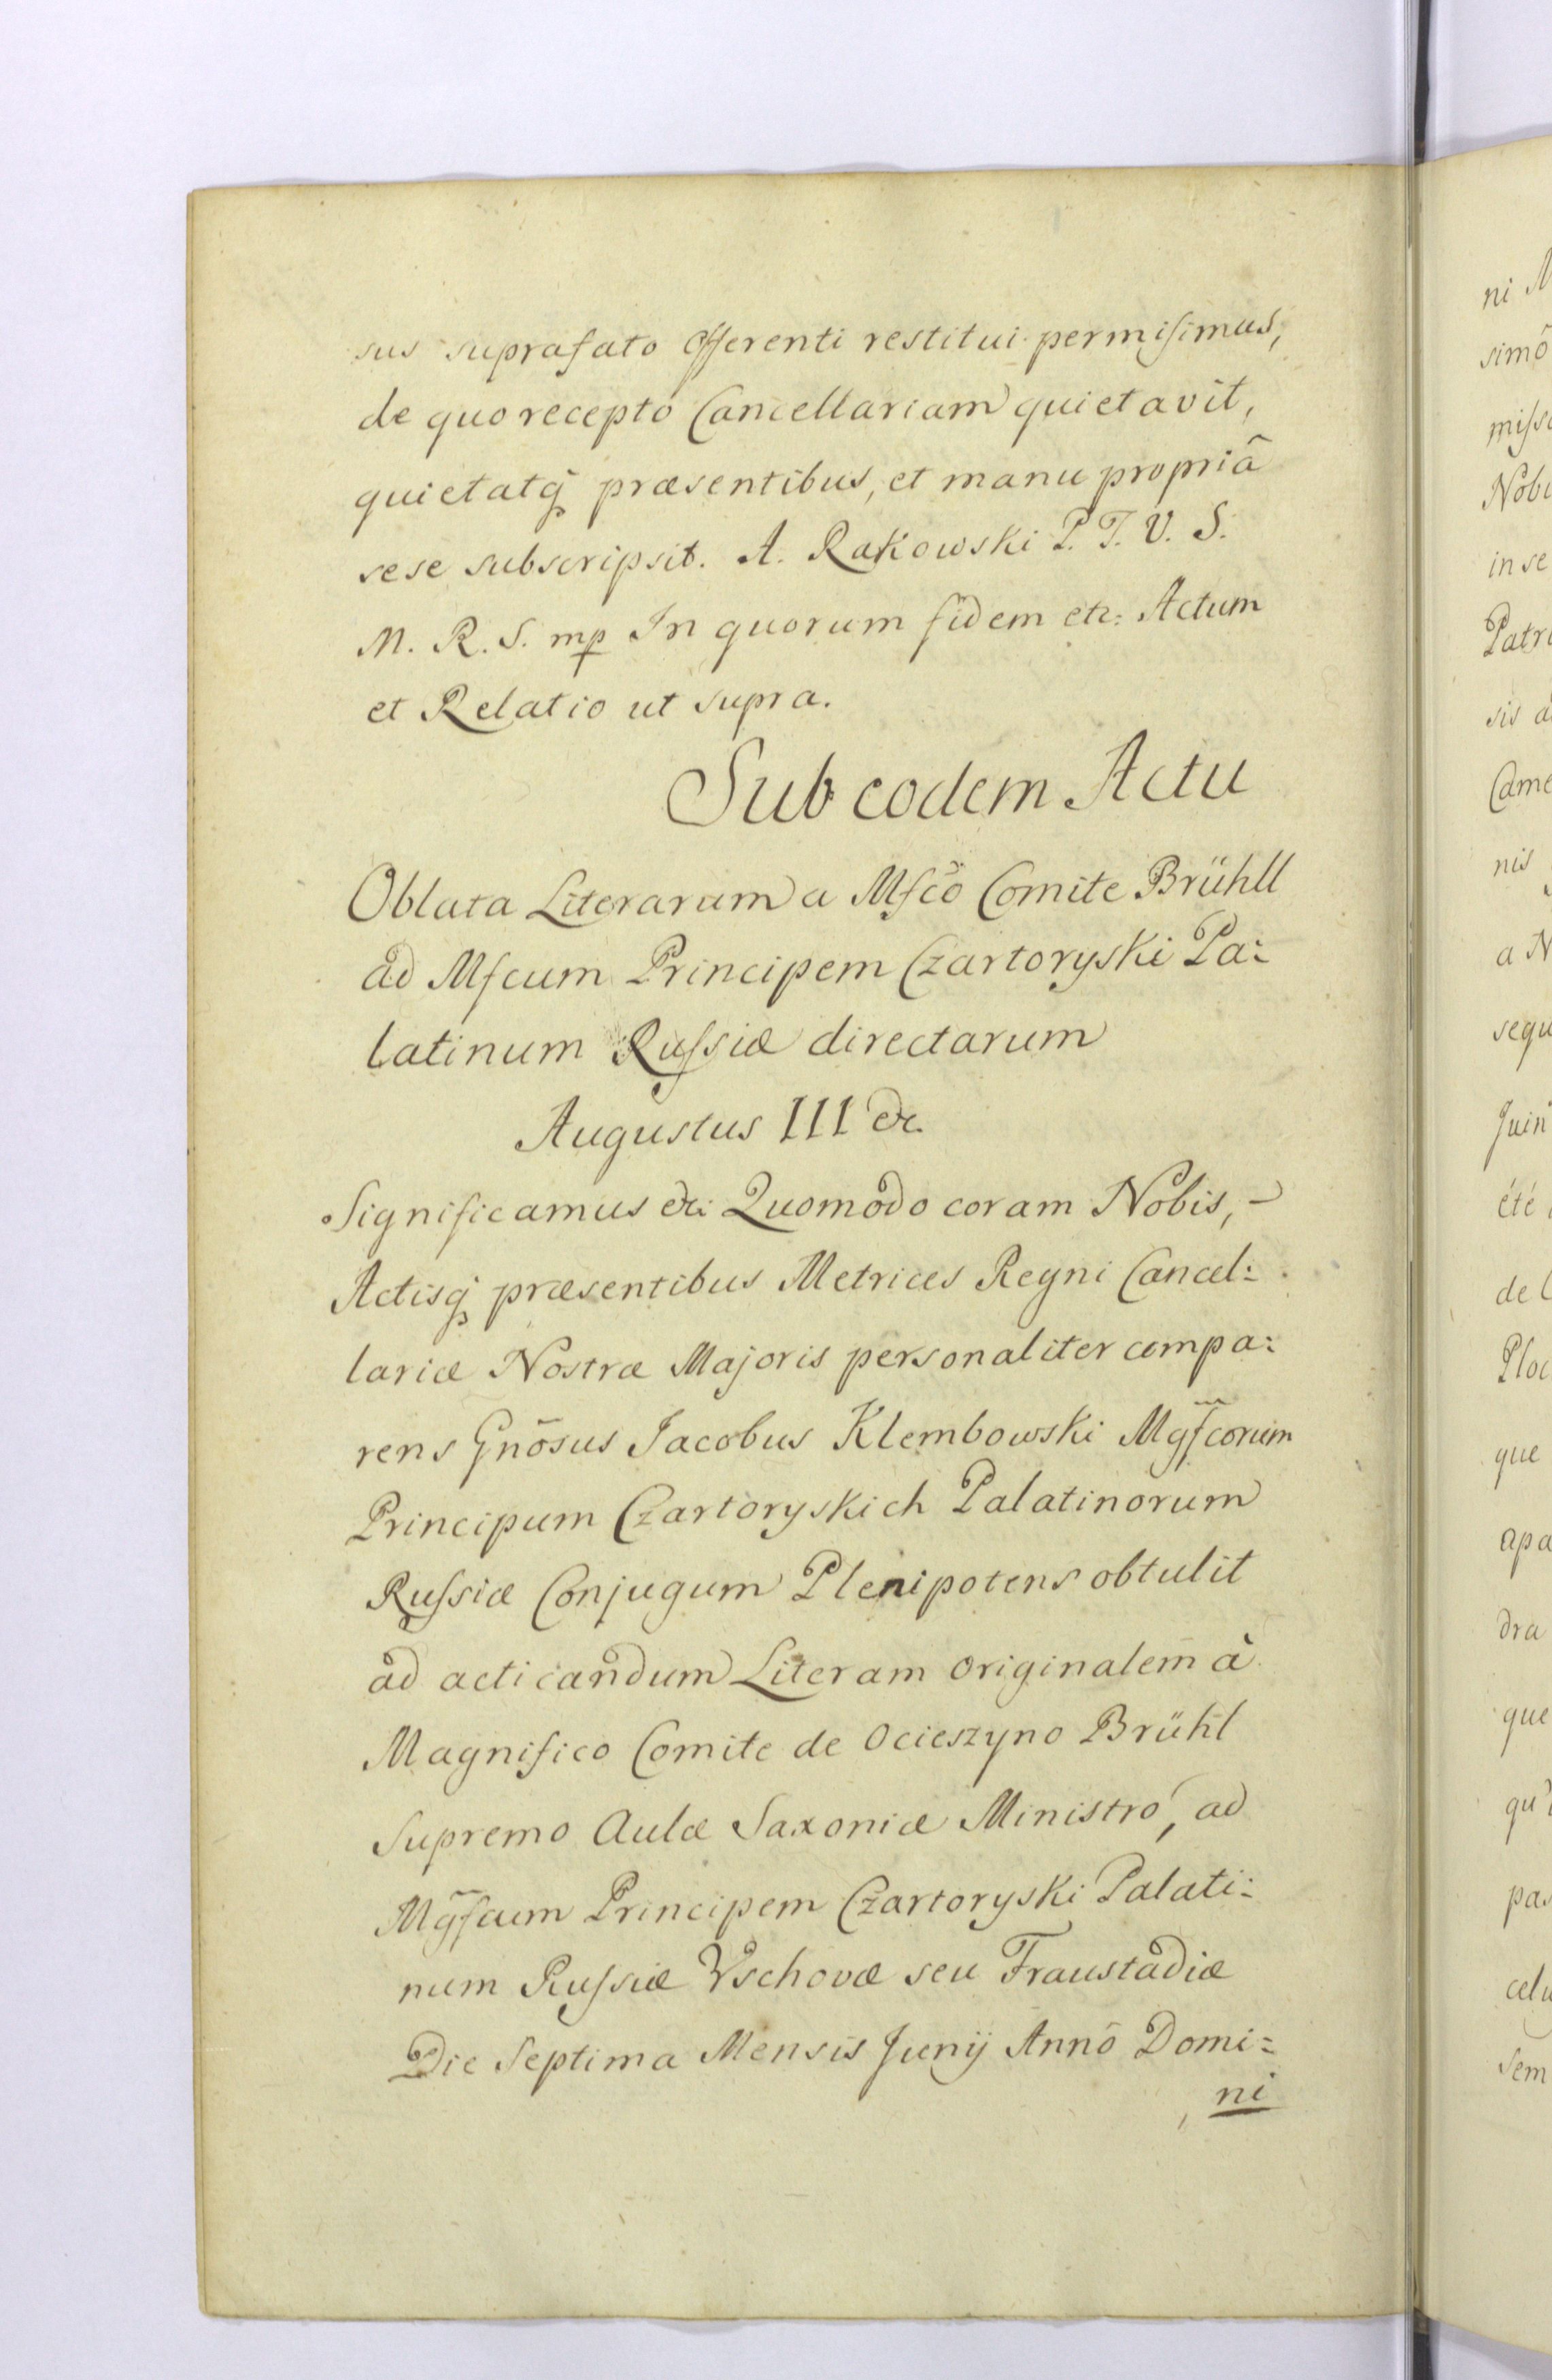 sus suprafato Offerenti restitui permisimus,
de quo recepto Cancellariam quietavit,
quietatq́ præsentibus, et manu propriâ
sese subscripsit. A. Rakowski P. T. V. S.
M. R. S. mp In quorum fidem etc: Actum
et Relatio ut supra.
Sub eodem Actu
Oblata Literarum a Mfcõ Comite Brühll
ad Mfcum Principem Czartoryski Pa:
latinum Russiæ directarum
Augustus III &c.
Significamus &c: Quomodo coram Nobis, -
Actisq́ præsentibus Metrices Regni Cancel:
lariæ Nostræ Majoris personaliter compa:
rens Gnõsus Jacobus Klembowski Mgf̃corum
Principum Czartoryskich Palatinorum
Russiæ Conjugum Plenipotens obtulit
ad acticandum Literam originalem à
Magnifico Comite de Ocieszyno Brühl
Supremo Aulæ Saxoniæ Ministro, ad
Mg̃fcum Principem Czartoryski Palati:
num Russiæ Vschovæ seu Fraustadiæ
Die Septima Mensis Junij Annô Domi:
ni
ni
simô
Nob
in se
Patri
sis
Came
nis
a N
sequ
Juin
été
de
Ploc
que
apa
dra
que
qu'
pas
celu
sem